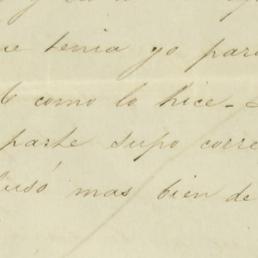 ue tenia yo par
como lo hice -
parte supo corre
usó mas bien de